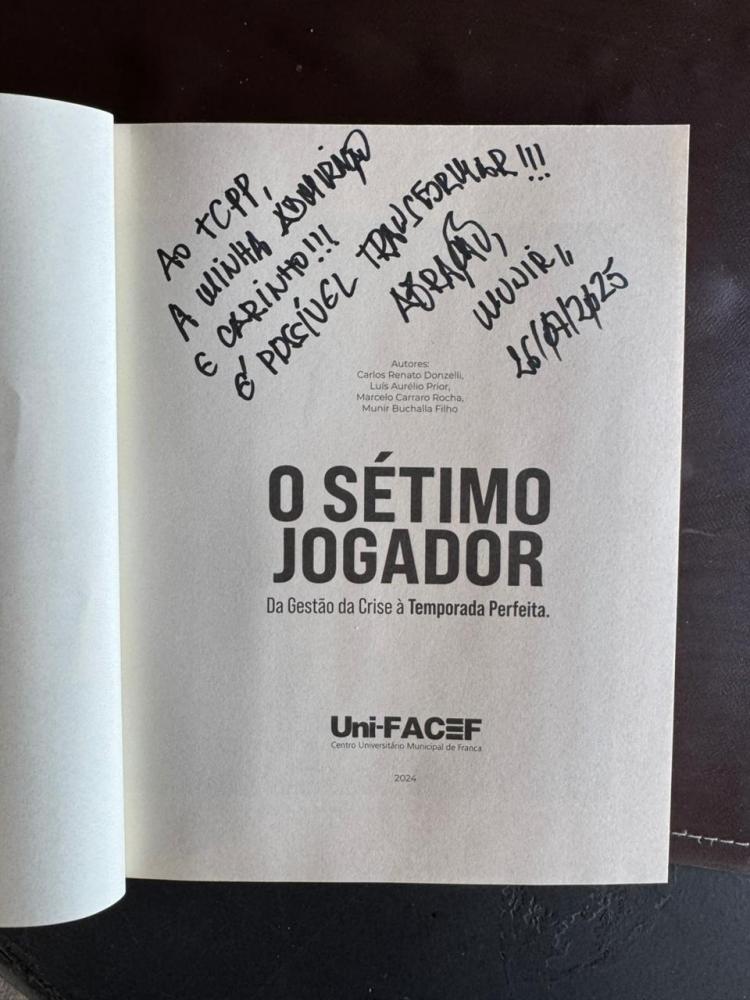 AO TCPP,
A MINHA ADMIRAÇÃO
E CARINHO!!!
É POSSÍVEL TRANSFORMAR!!!
ABRAÇÃO,
MUNIR,
26/07/2025
Autores:
Carlos Renato Donzelli,
Luís Aurélio Prior,
Marcelo Carraro Rocha,
Munir Buchalla Filho
O SÉTIMO
JOGADOR
Da Gestão da Crise à Temporada Perfeita.
Uni-FACEF
Centro Universitário Municipal de Franca
2024